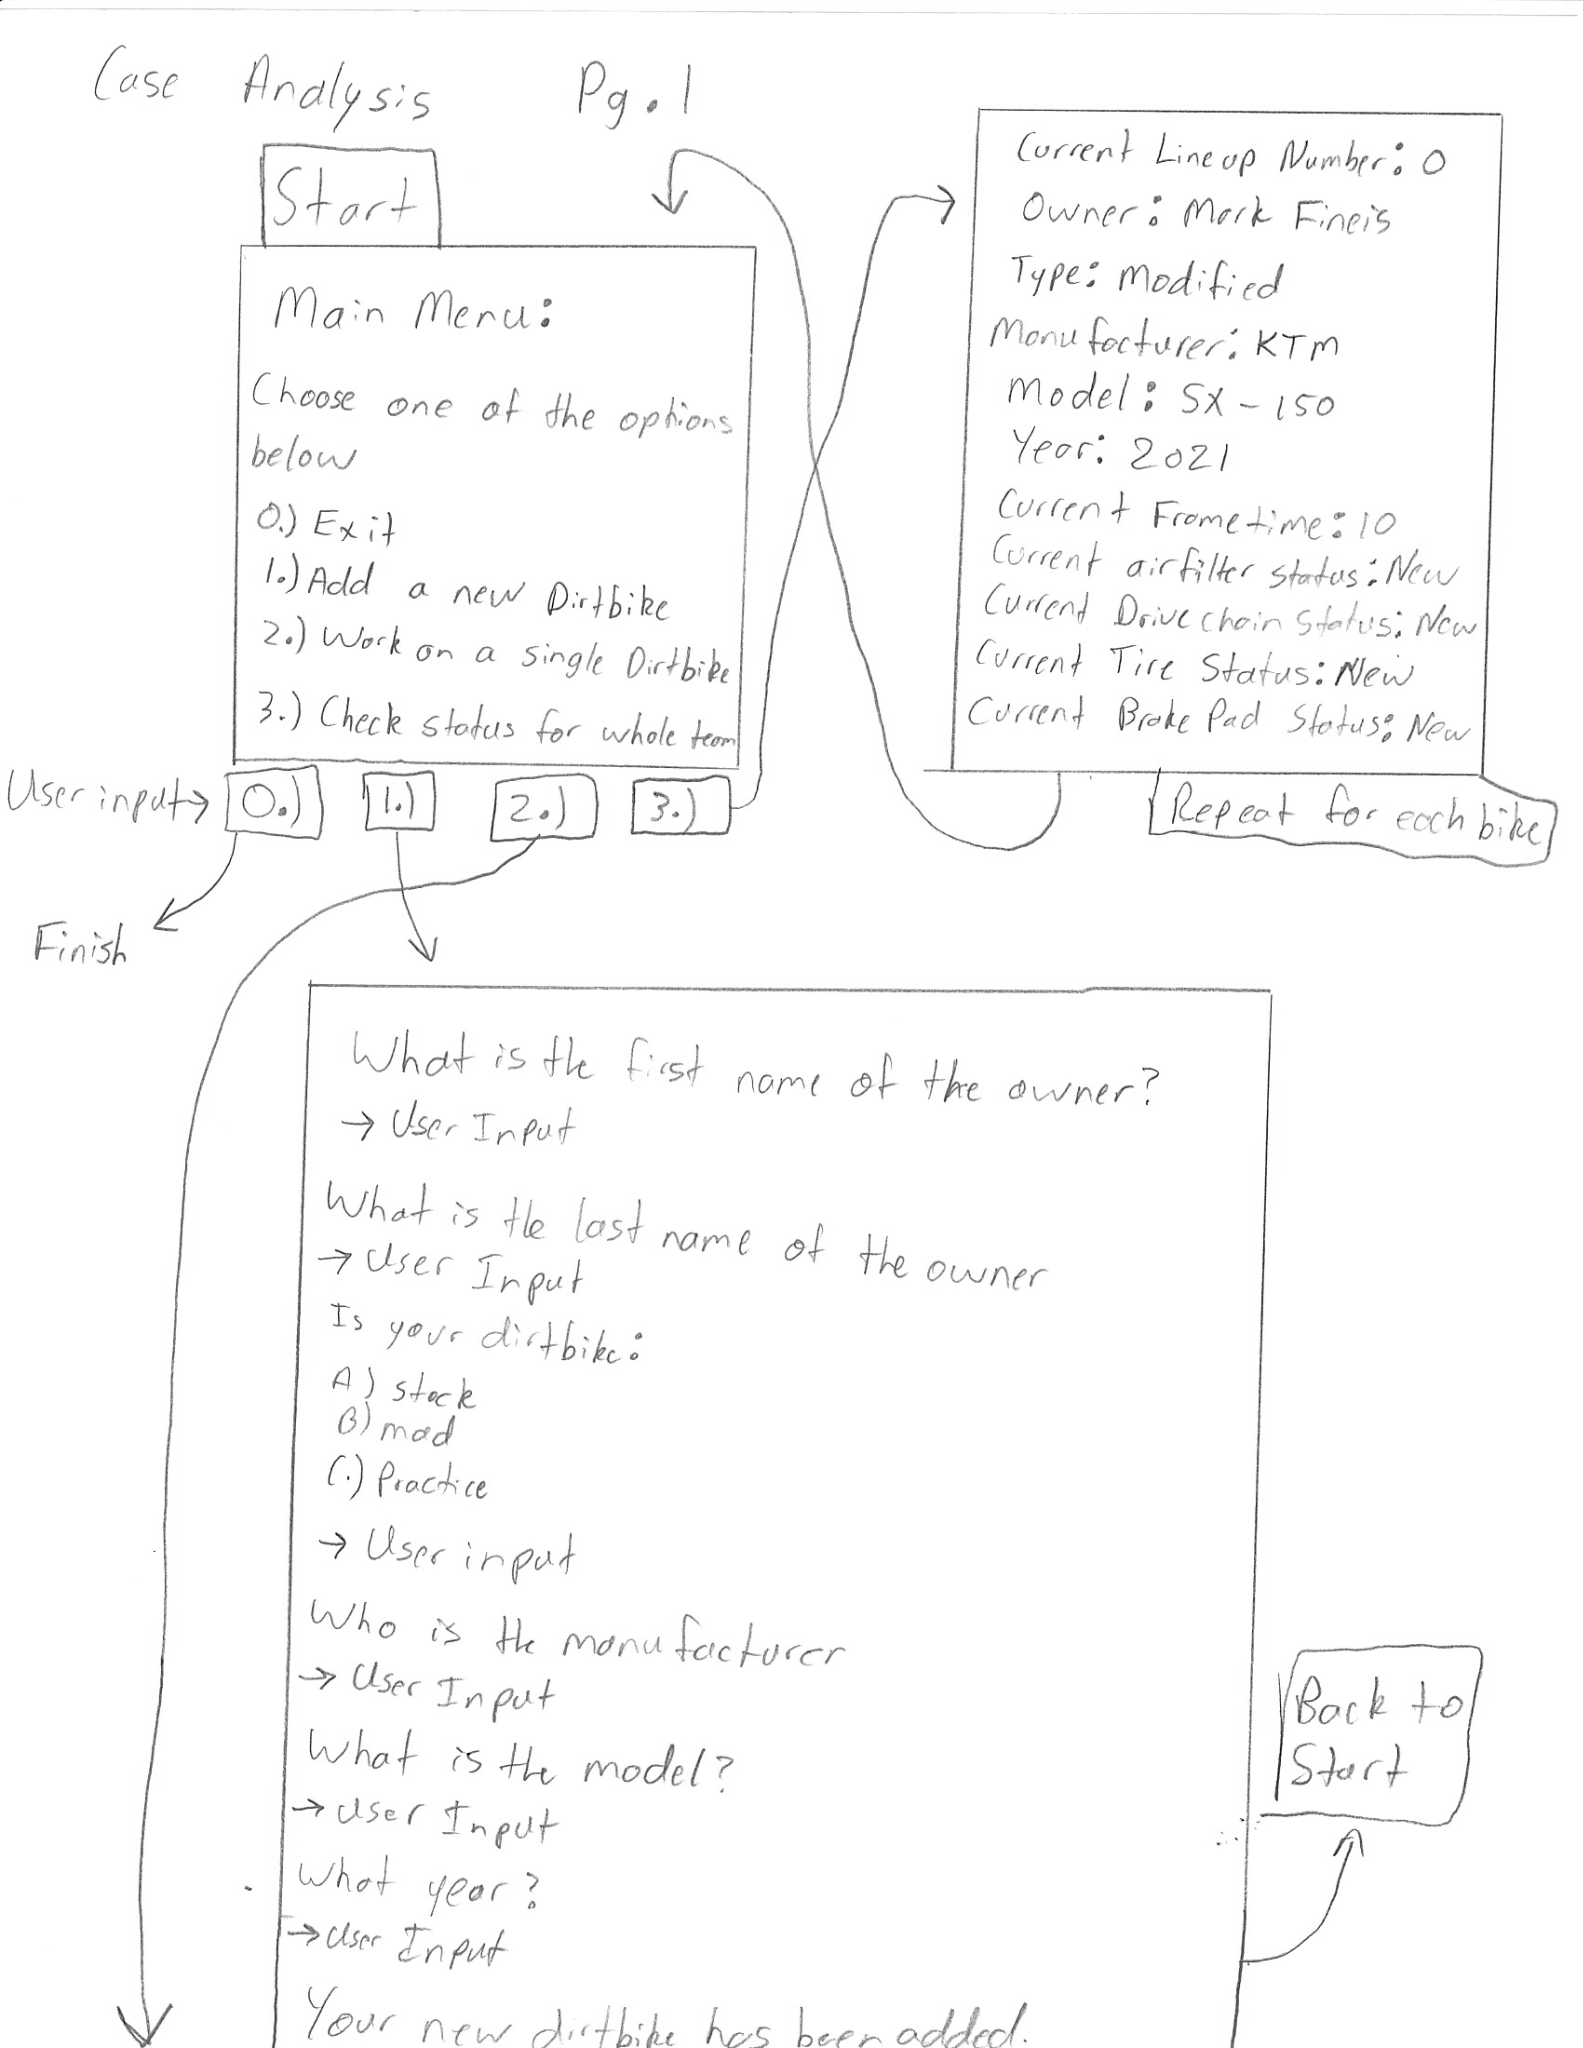 Case Analysis Pg. 1
Start
Main Menu:
Choose one of the options
below
0.) Exit
1.) Add a new Dirtbike
2.) Work on a single Dirtbike
3.) Check status for whole team
User input→ 0.) 1.) 2.) 3.)
Finish
Current Lineup Number: 0
Owner: Mark Fineis
Type: Modified
Manufacturer: KTM
Model: SX-150
Year: 2021
Current Frametime: 10
Current airfilter status: New
Current Drivechain Status: New
Current Tire Status: New
Current Brake Pad Status: New
Repeat for each bike
What is the first name of the owner?
→ User Input
What is the last name of the owner
→ User Input
Is your dirtbike:
A) stock
B) mod
C.) Practice
→ User input
Who is the manufacturer
→ User Input
What is the model?
→ User Input
What year?
→ User Input
Your new dirtbike has been added.
Back to
Start